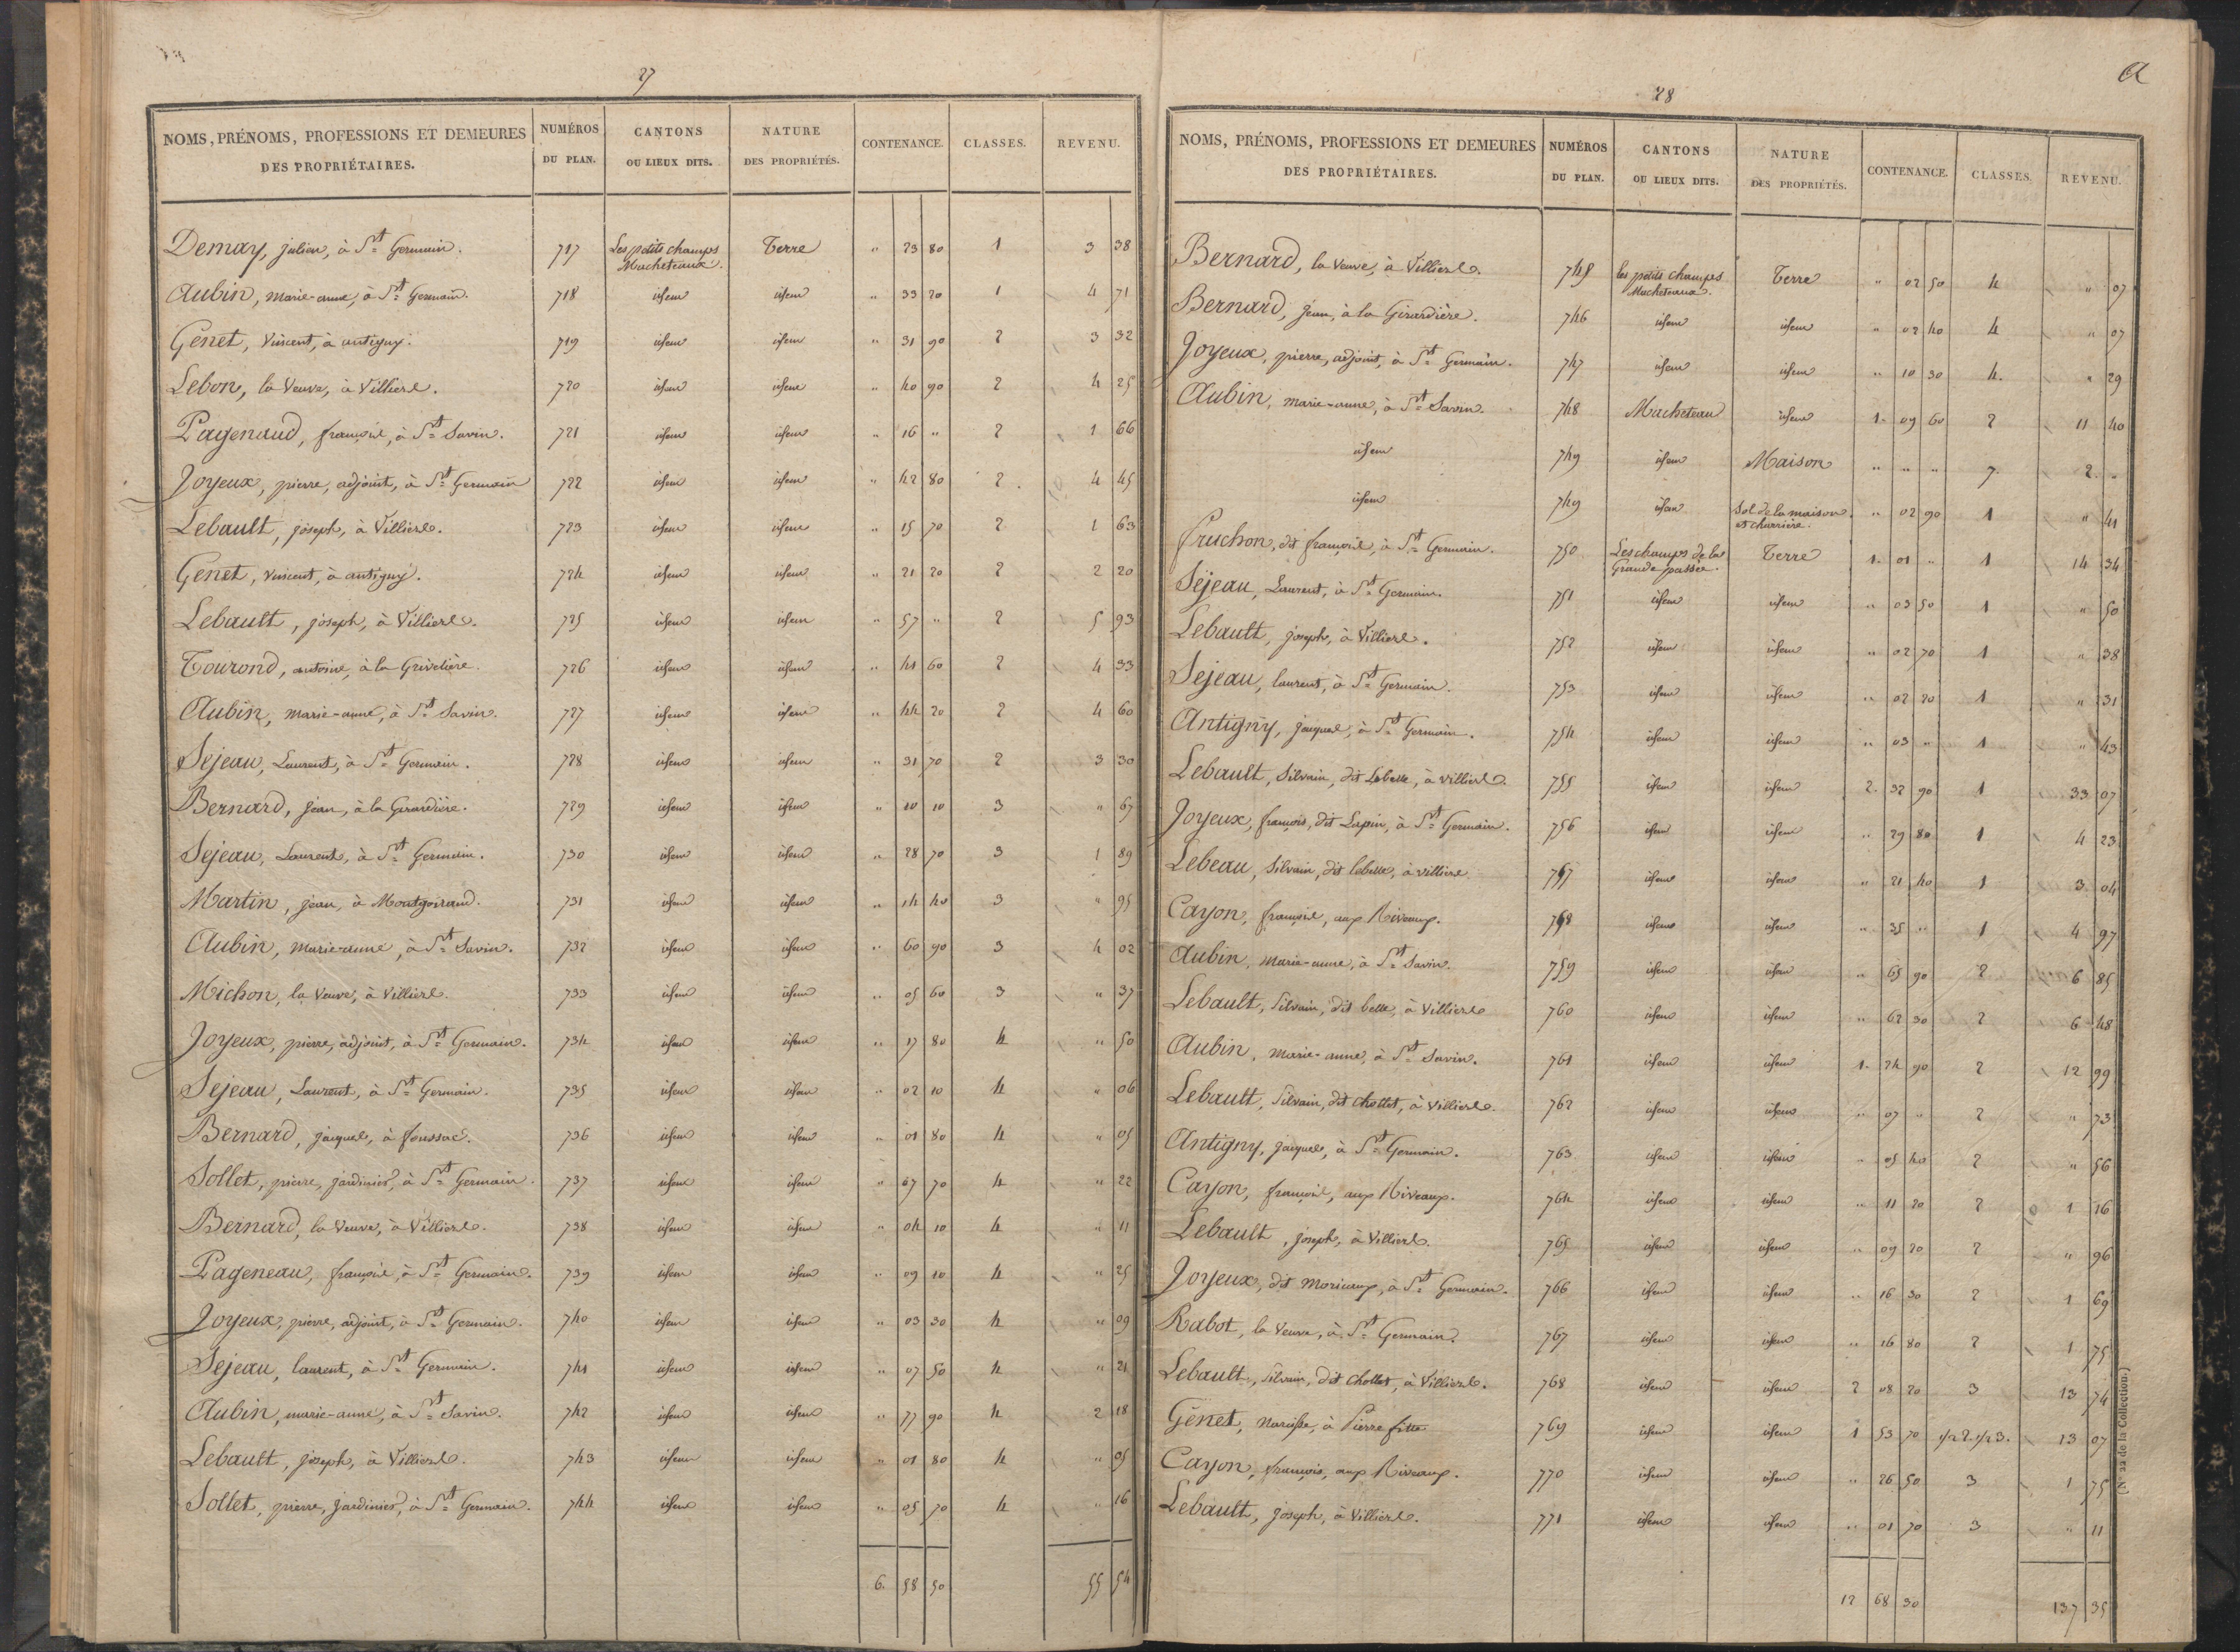 27
NOMS, PRÉNOMS, PROFESSIONS ET DEMEURES DES PROPRIÉTAIRES. NUMÉROS DU PLAN. CANTONS OU LIEUX DITS. NATURE DES PROPRIÉTÉS. CONTENANCE. CLASSES. REVENU.
Demay, julien, à St Germain. 717 Les petits champs Macheteaux. Terre " 23 80 1 3 38
Aubin, marie-anne, à St Germain. 718 idem idem " 33 20 1 4 71
Genet, Vincent, à antigny. 719 idem idem " 31 90 2 3 32
Lebon, la Veuve, à Villiers. 720 idem idem " 40 90 2 4 25
Pagenaud, françois, à St Savin. 721 idem idem " 16 " 2 1 66
Joyeux, pierre, adjoint, à St Germain 722 idem idem " 42 80 2 4 45
Lebault, joseph, à Villiers. 723 idem idem " 15 70 2 1 63
Genet, vincent, à antigny. 724 idem idem " 21 20 2 2 20
Lebault, joseph, à Villiers. 725 idem idem " 57 " 2 5 93
Tourond, antoine, à la Grivelière. 726 idem idem " 41 60 2 4 33
Aubin, marie-anne, à St Savin. 727 idem idem " 44 20 2 4 60
Sejeau, Laurent, à St Germain. 728 idem idem " 31 70 2 3 30
Bernard, jean, à la Girardière. 729 idem idem " 10 10 3 " 67
Sejeau, Laurent, à St Germain. 730 idem idem " 28 70 3 1 89
Martin, jean, à Montgoiraud. 731 idem idem " 14 40 3 " 95
Aubin, marie-anne, à St Savin. 732 idem idem " 60 90 3 4 02
Michon, la Veuve, à Villiers. 733 idem idem " 05 60 3 " 37
Joyeux, pierre, adjoint, à St Germain. 734 idem idem " 17 80 4 " 50
Sejeau, Laurent, à St Germain. 735 idem idem " 02 10 4 " 06
Bernard, jacques, à foussac. 736 idem idem " 01 80 4 " 05
Sollet, pierre, jardinier, à St Germain. 737 idem idem " 07 70 4 " 22
Bernard, la Veuve, à Villiers. 738 idem idem " 04 10 4 " 11
Pageneau, françois, à St Germain. 739 idem idem " 09 10 4 " 25
Joyeux, pierre, adjoint, à St Germain. 740 idem idem " 03 30 4 " 09
Sejeau, laurent, à St Germain. 741 idem idem " 07 50 4 " 21
Aubin, marie-anne, à St Savin. 742 idem idem " 77 90 4 2 18
Lebault, joseph, à Villiers. 743 idem idem " 01 80 4 " 05
Sollet, pierre, jardinier, à St Germain. 744 idem idem " 05 70 4 " 16
6. 58 50 55 54
28
NOMS, PRÉNOMS, PROFESSIONS ET DEMEURES DES PROPRIÉTAIRES. NUMÉROS DU PLAN. CANTONS OU LIEUX DITS. NATURE DES PROPRIÉTÉS. CONTENANCE. CLASSES. REVENU.
Bernard, la Veuve, à Villiers. 745 les petits champs Macheteaux. Terre " 02 50 4 " 07
Bernard, jean, à la Girardière. 746 idem idem " 02 40 4 " 07
Joyeux, pierre, adjoint, à St Germain. 747 idem idem " 10 30 4. " 29
Aubin, marie-anne, à St Savin. 748 Macheteau idem 1. 09 60 2 11 40
idem 749 idem Maison " " " 7. 2. "
idem 749 idem Sol de la maison et charrière. " 02 90 1 " 41
fruchon, dit françois, à St Germain. 750 Les champs de la Grande passée. Terre 1. 01 " 1 14 34
Sejeau, Laurent, à St Germain. 751 idem idem " 03 50 1 " 50
Lebault, joseph, à Villiers. 752 idem idem " 02 70 1 " 38
Sejeau, laurent, à St Germain. 753 idem idem " 02 20 1 " 31
Antigny, jacques, à St Germain. 754 idem idem " 03 " 1 " 43
Lebault, Silvain, dit Lebelle, à villiers. 755 idem idem 2. 32 90 1 33 07
Joyeux, françois, dit Lapin, à St Germain. 756 idem idem " 29 80 1 4 23
Lebeau, Silvain, dit lebelle, à villiers 757 idem idem " 21 40 1 3 04
Cayon, françois, aux Riveaux. 758 idem idem " 35 " 1 4 97
Aubin, marie-anne, à St Savin. 759 idem idem " 65 90 2 6 85
Lebault, Silvain, dit belle, à Villiers 760 idem idem " 62 30 2 6 48
Aubin, marie-anne, à St Savin. 761 idem idem 1. 24 90 2 12 99
Lebault, Silvain, dit Chollet, à Villiers. 762 idem idem " 07 " 2 " 73
Antigny, jacques, à St Germain. 763 idem idem " 05 40 2 " 56
Cayon, françois, aux Riveaux. 764 idem idem " 11 20 2 1 16
Lebault, joseph, à Villiers. 765 idem idem " 09 20 2 " 96
Joyeux, dit Moricaux, à St Germain. 766 idem idem " 16 30 2 1 69
Rabot, la Veuve, à St Germain. 767 idem idem " 16 80 2 1 75
Lebault, Silvain, dit Chollet, à Villiers. 768 idem idem 2 08 20 3 13 74
Génet, narcisse, à Pierre fitte 769 idem idem 1 53 70 1/2 2. 1/2 3. 13 07
Cayon, françois, aux Riveaux. 770 idem idem " 26 50 3 1 75
Lebault, joseph, à Villiers. 771 idem idem " 01 70 3 " 11
12 68 30 137 35
(N° 22 de la Collection.)